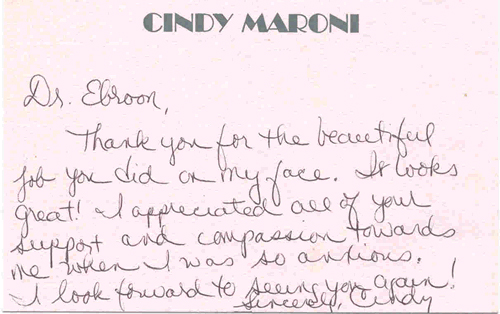 CINDY MARONI
Dr. Ebroon,
Thank you for the beautiful
job you did on my face. It looks
great! I appreciated all of your
support and compassion towards
me when I was so anxious.
I look forward to seeing you again!
Sincerely, Cindy